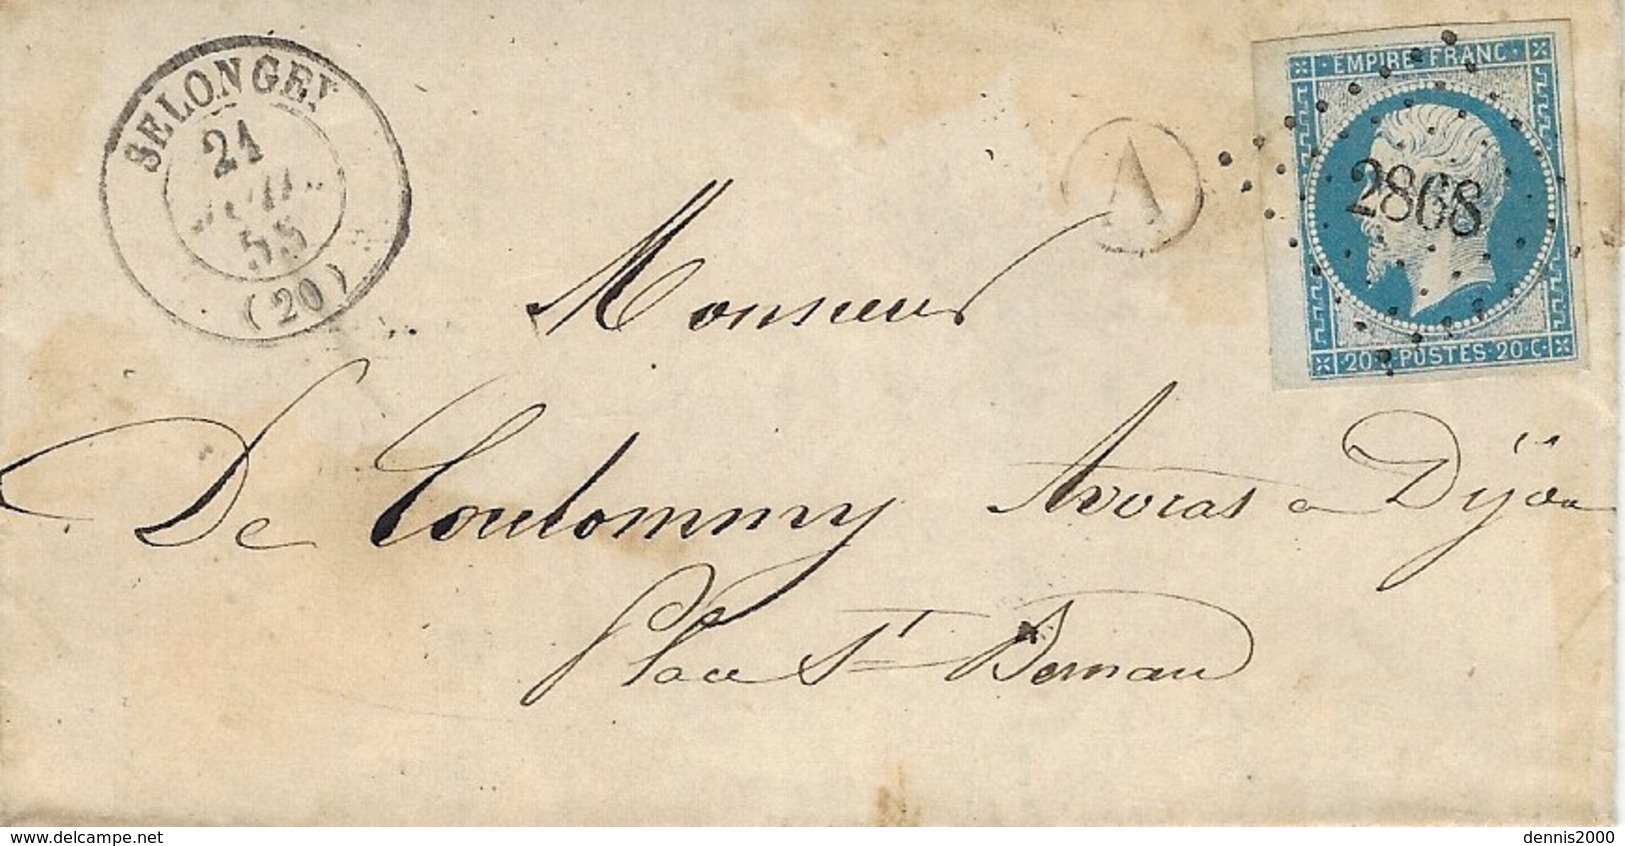 SELONGEY
21
55
(20)
A
EMPIRE FRANC
2868
20 C POSTES 20 C
Monsieur
De Coulommy Avocat a Dijon
Place St Bernau
www.delcampe.net
dennis2000